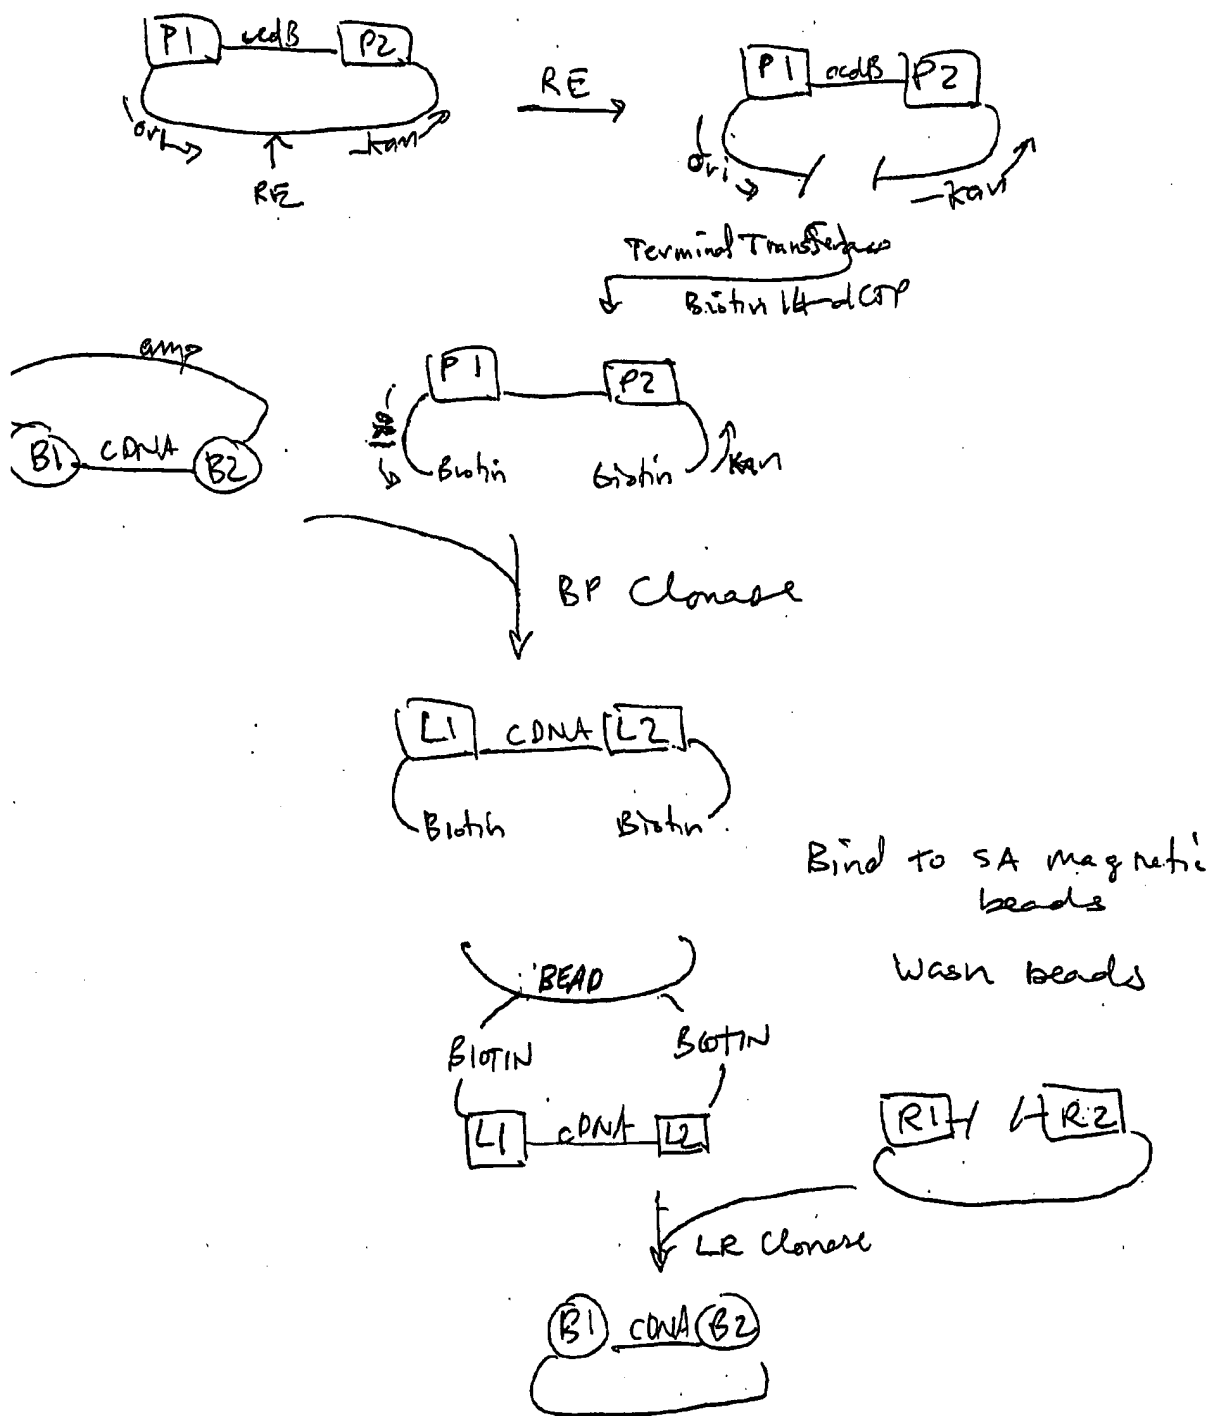 P1 ccdB P2
ori
kan
RE
RE
P1 ccdB P2
ori
kan
Terminal Transferase
Biotin 14-dCTP
amp
B1 cDNA B2
P1 P2
ORI
Biotin Biotin
kan
BP Clonase
L1 CDNA L2
Biotin Biotin
Bind to SA magnetic
beads
Wash beads
BEAD
BIOTIN BIOTIN
L1 cDNA L2
R1 R2
LR Clonase
B1 CDNA B2